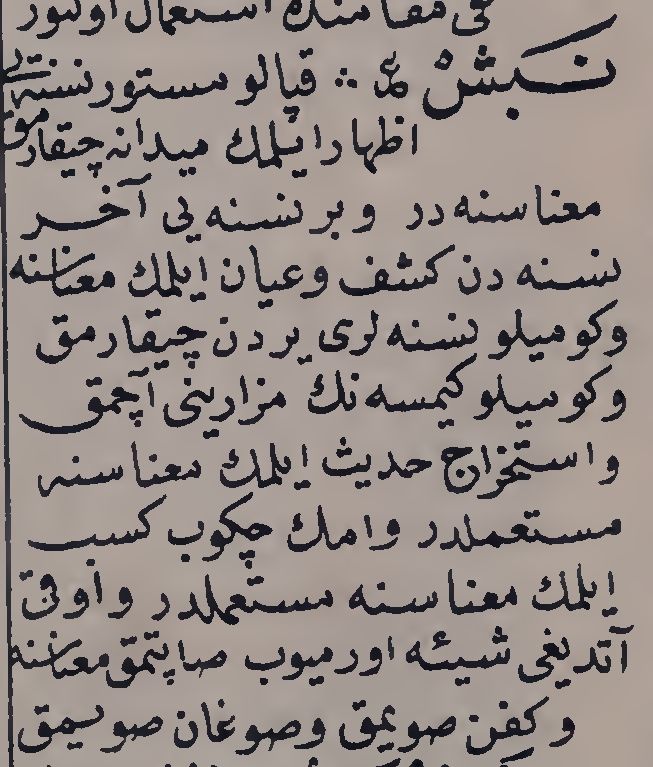 مقامنده استعمال اولنور
نبش قپالو مستور نسنه یی
اظهار ایلمك میدانه چیقارمق
معناسنه در و بر نسنه یی آخر
نسنه دن كشف و عیان ایلمك معناسنه
و كومیلو نسنه لری یردن چیقارمق
و كومیلو كیمسه نك مزارینی آچمق
و استخراج حدیث ایلمك معناسنه
مستعملدر و امك چكوب كسب
ایلمك معناسنه مستعملدر و اوق
آتدیغی شیئه اورمیوب صاپتمق معناسنه
و كفن صویمق و صوغان صویمق